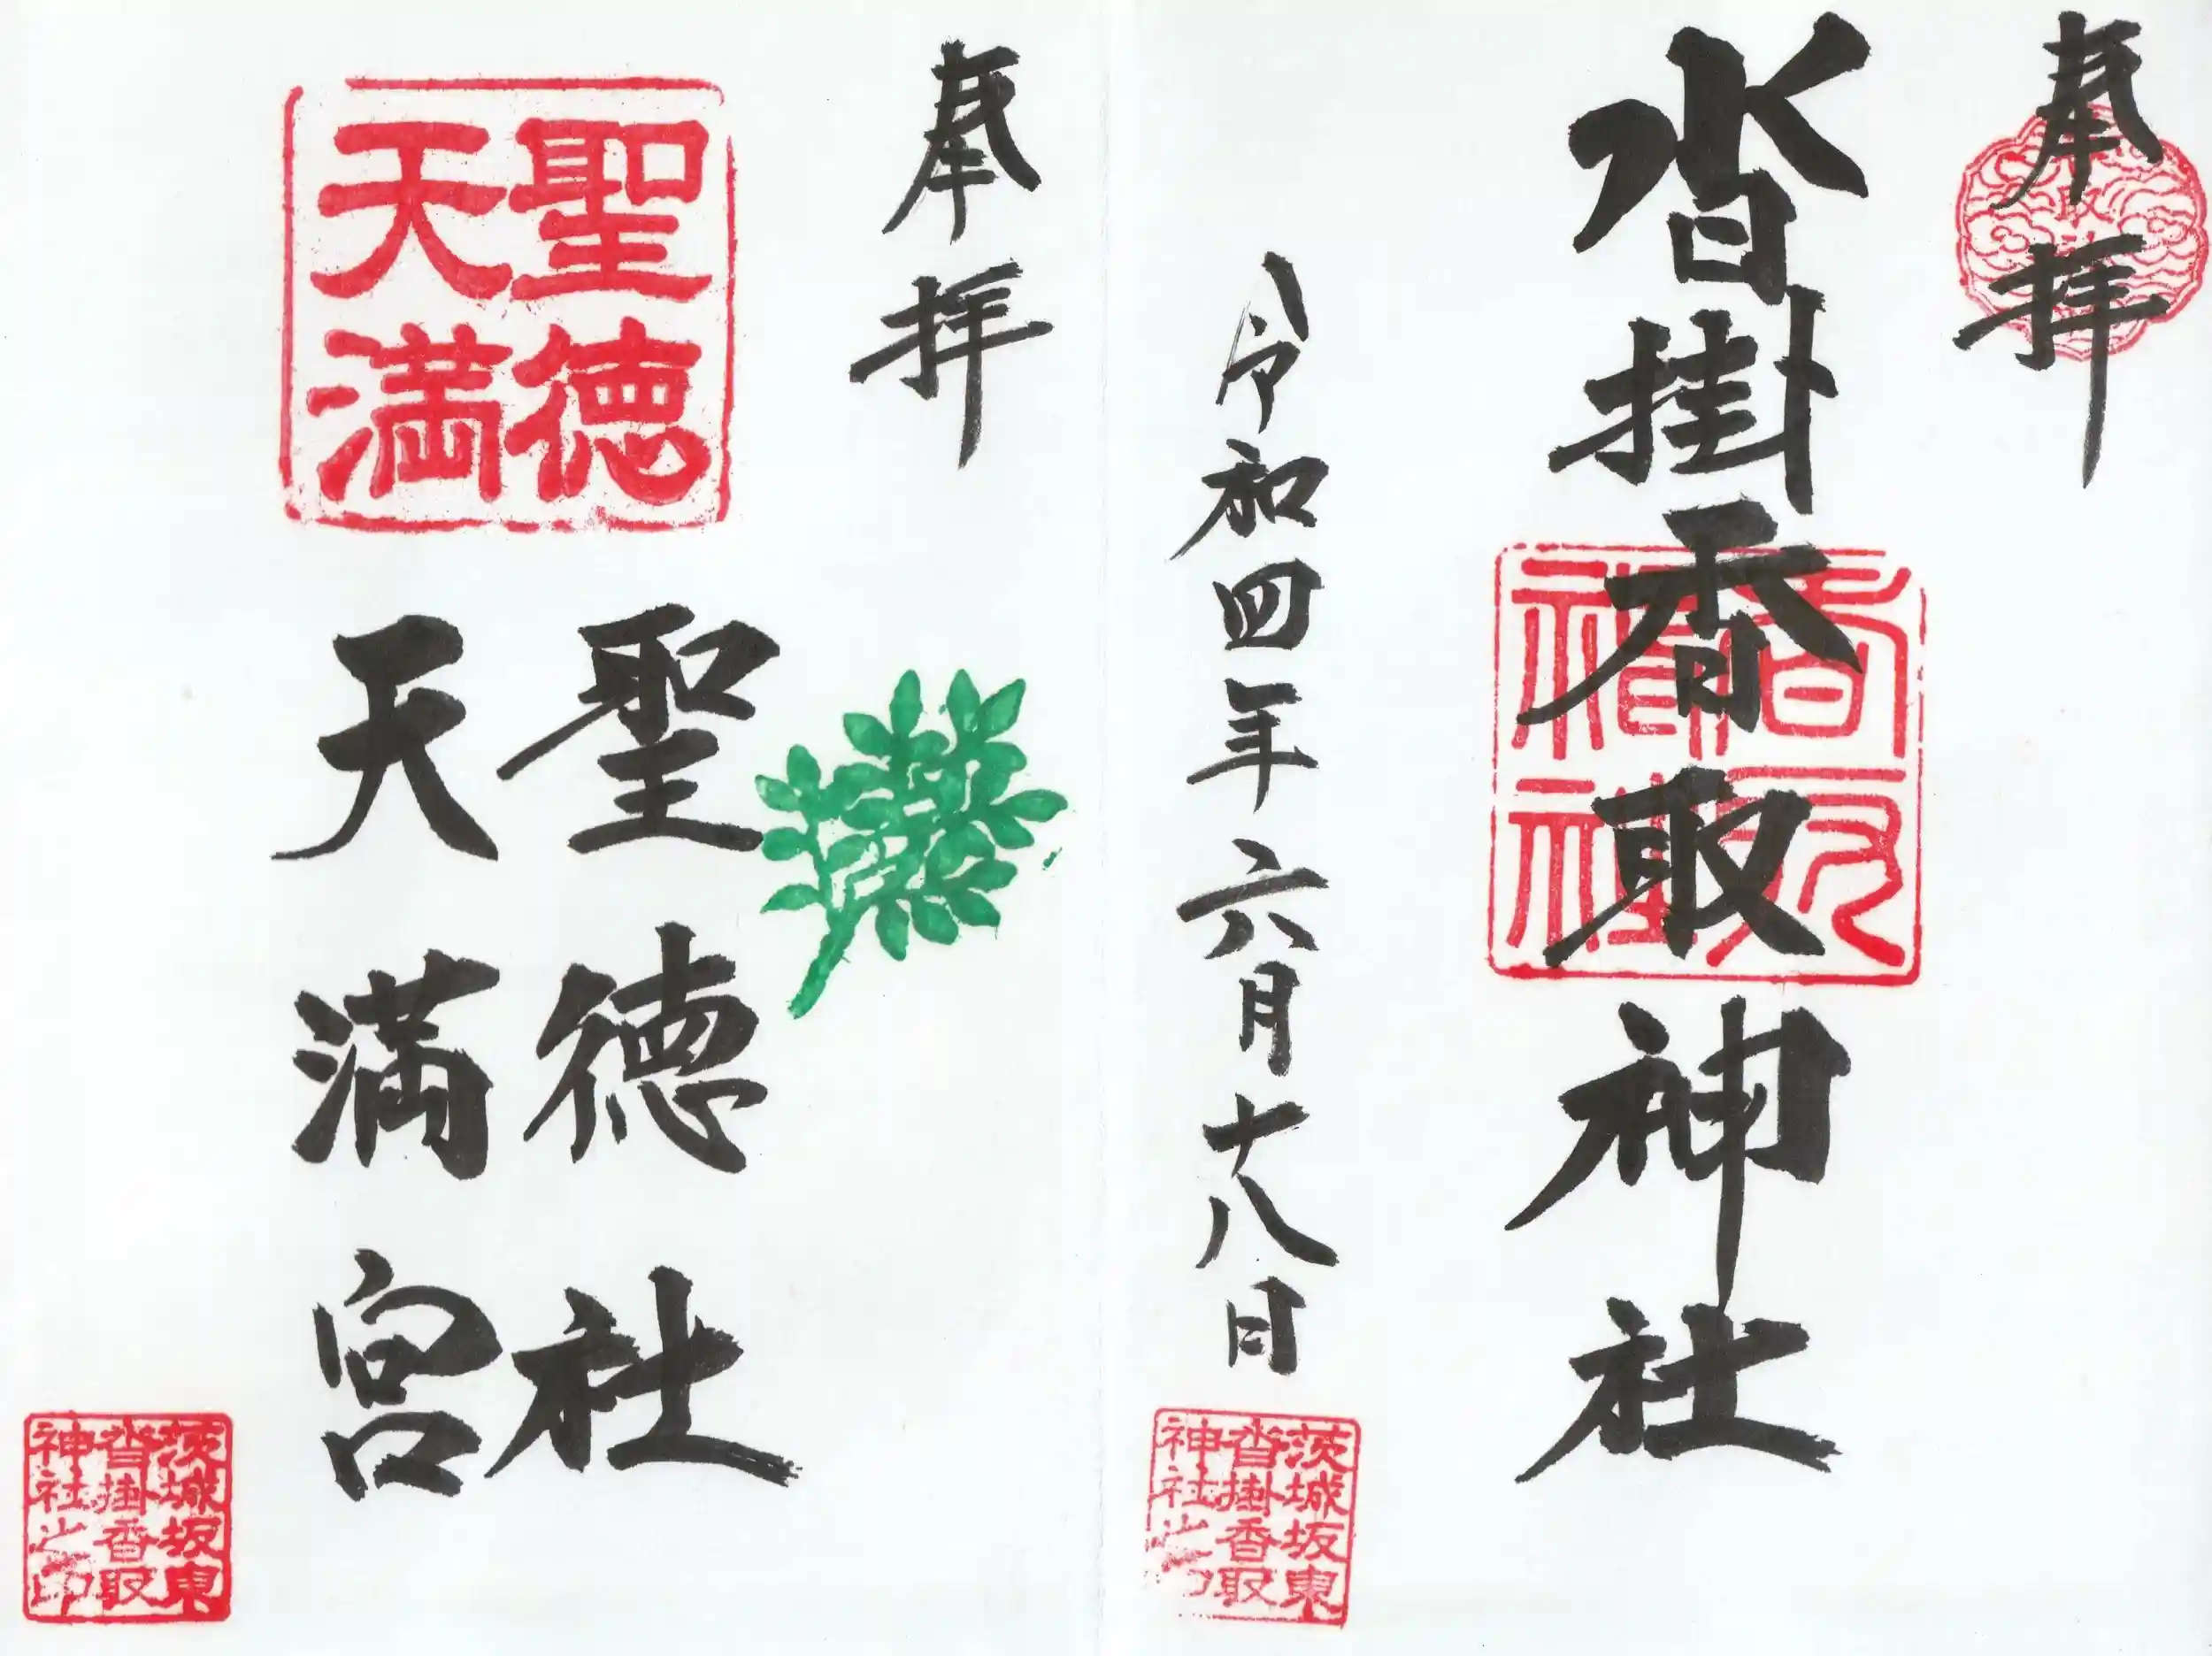 奉拝
沓掛香取神社
香取
神社
令和四年六月十八日
茨城坂東
沓掛香取
神社之印
奉拝
聖徳
天満
聖徳社
天満宮
茨城坂東
沓掛香取
神社之印